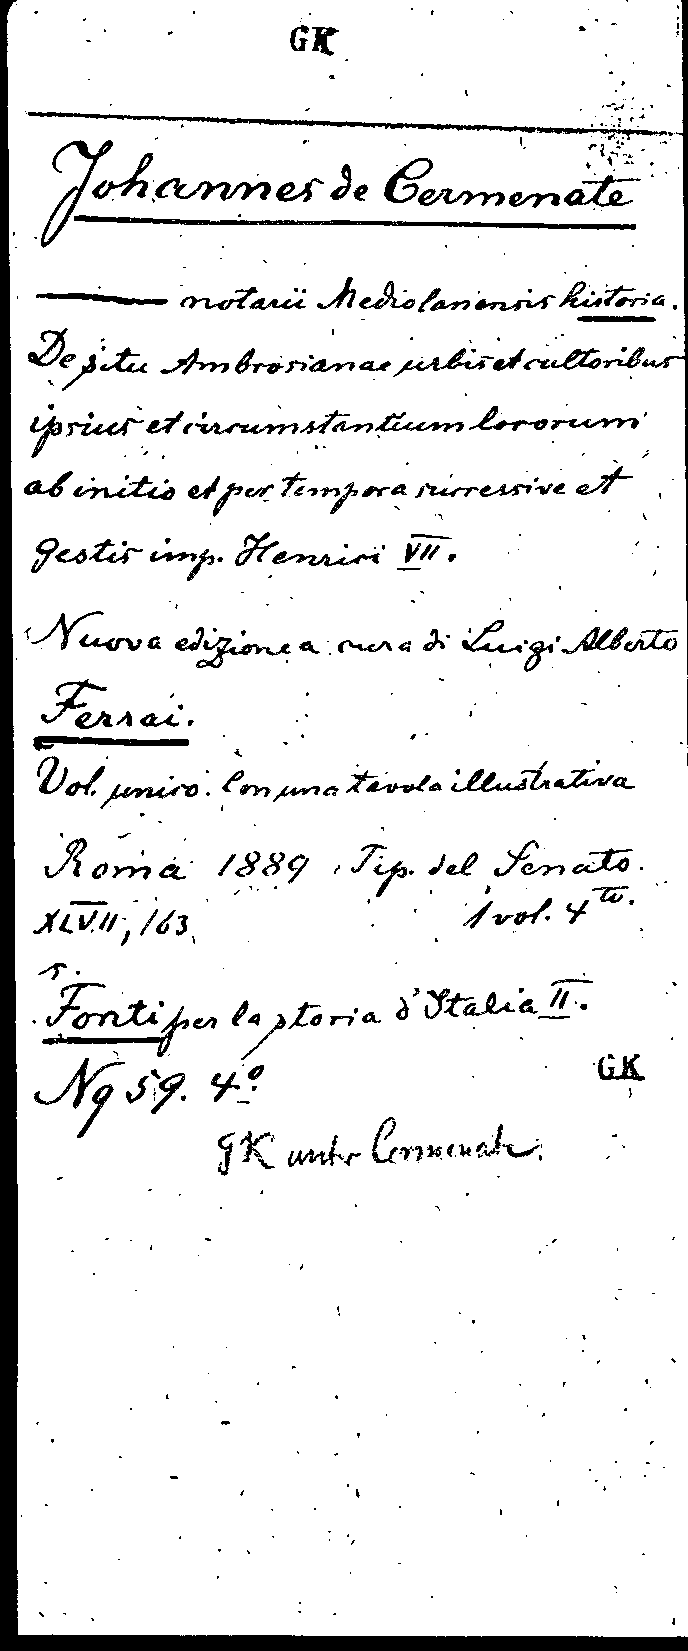 GK
Johannes de Cermenate
—— notarii Mediolanensis historia.
De situ Ambrosianae urbis et cultoribus
ipsius et circumstantium locorum
ab initio et per tempora successive et
gestis imp. Henrici VII.
Nuova edizione a cura di Luigi Alberto
Ferrai.
Vol. unico. Con una tavola illustrativa
Roma 1889 Tip. del Senato.
XLVII, 163. 1 vol. 4to.
s.
Fonti per la storia d'Italia II.
Nq 59. 4º.
GK
GK unter Cermenate.